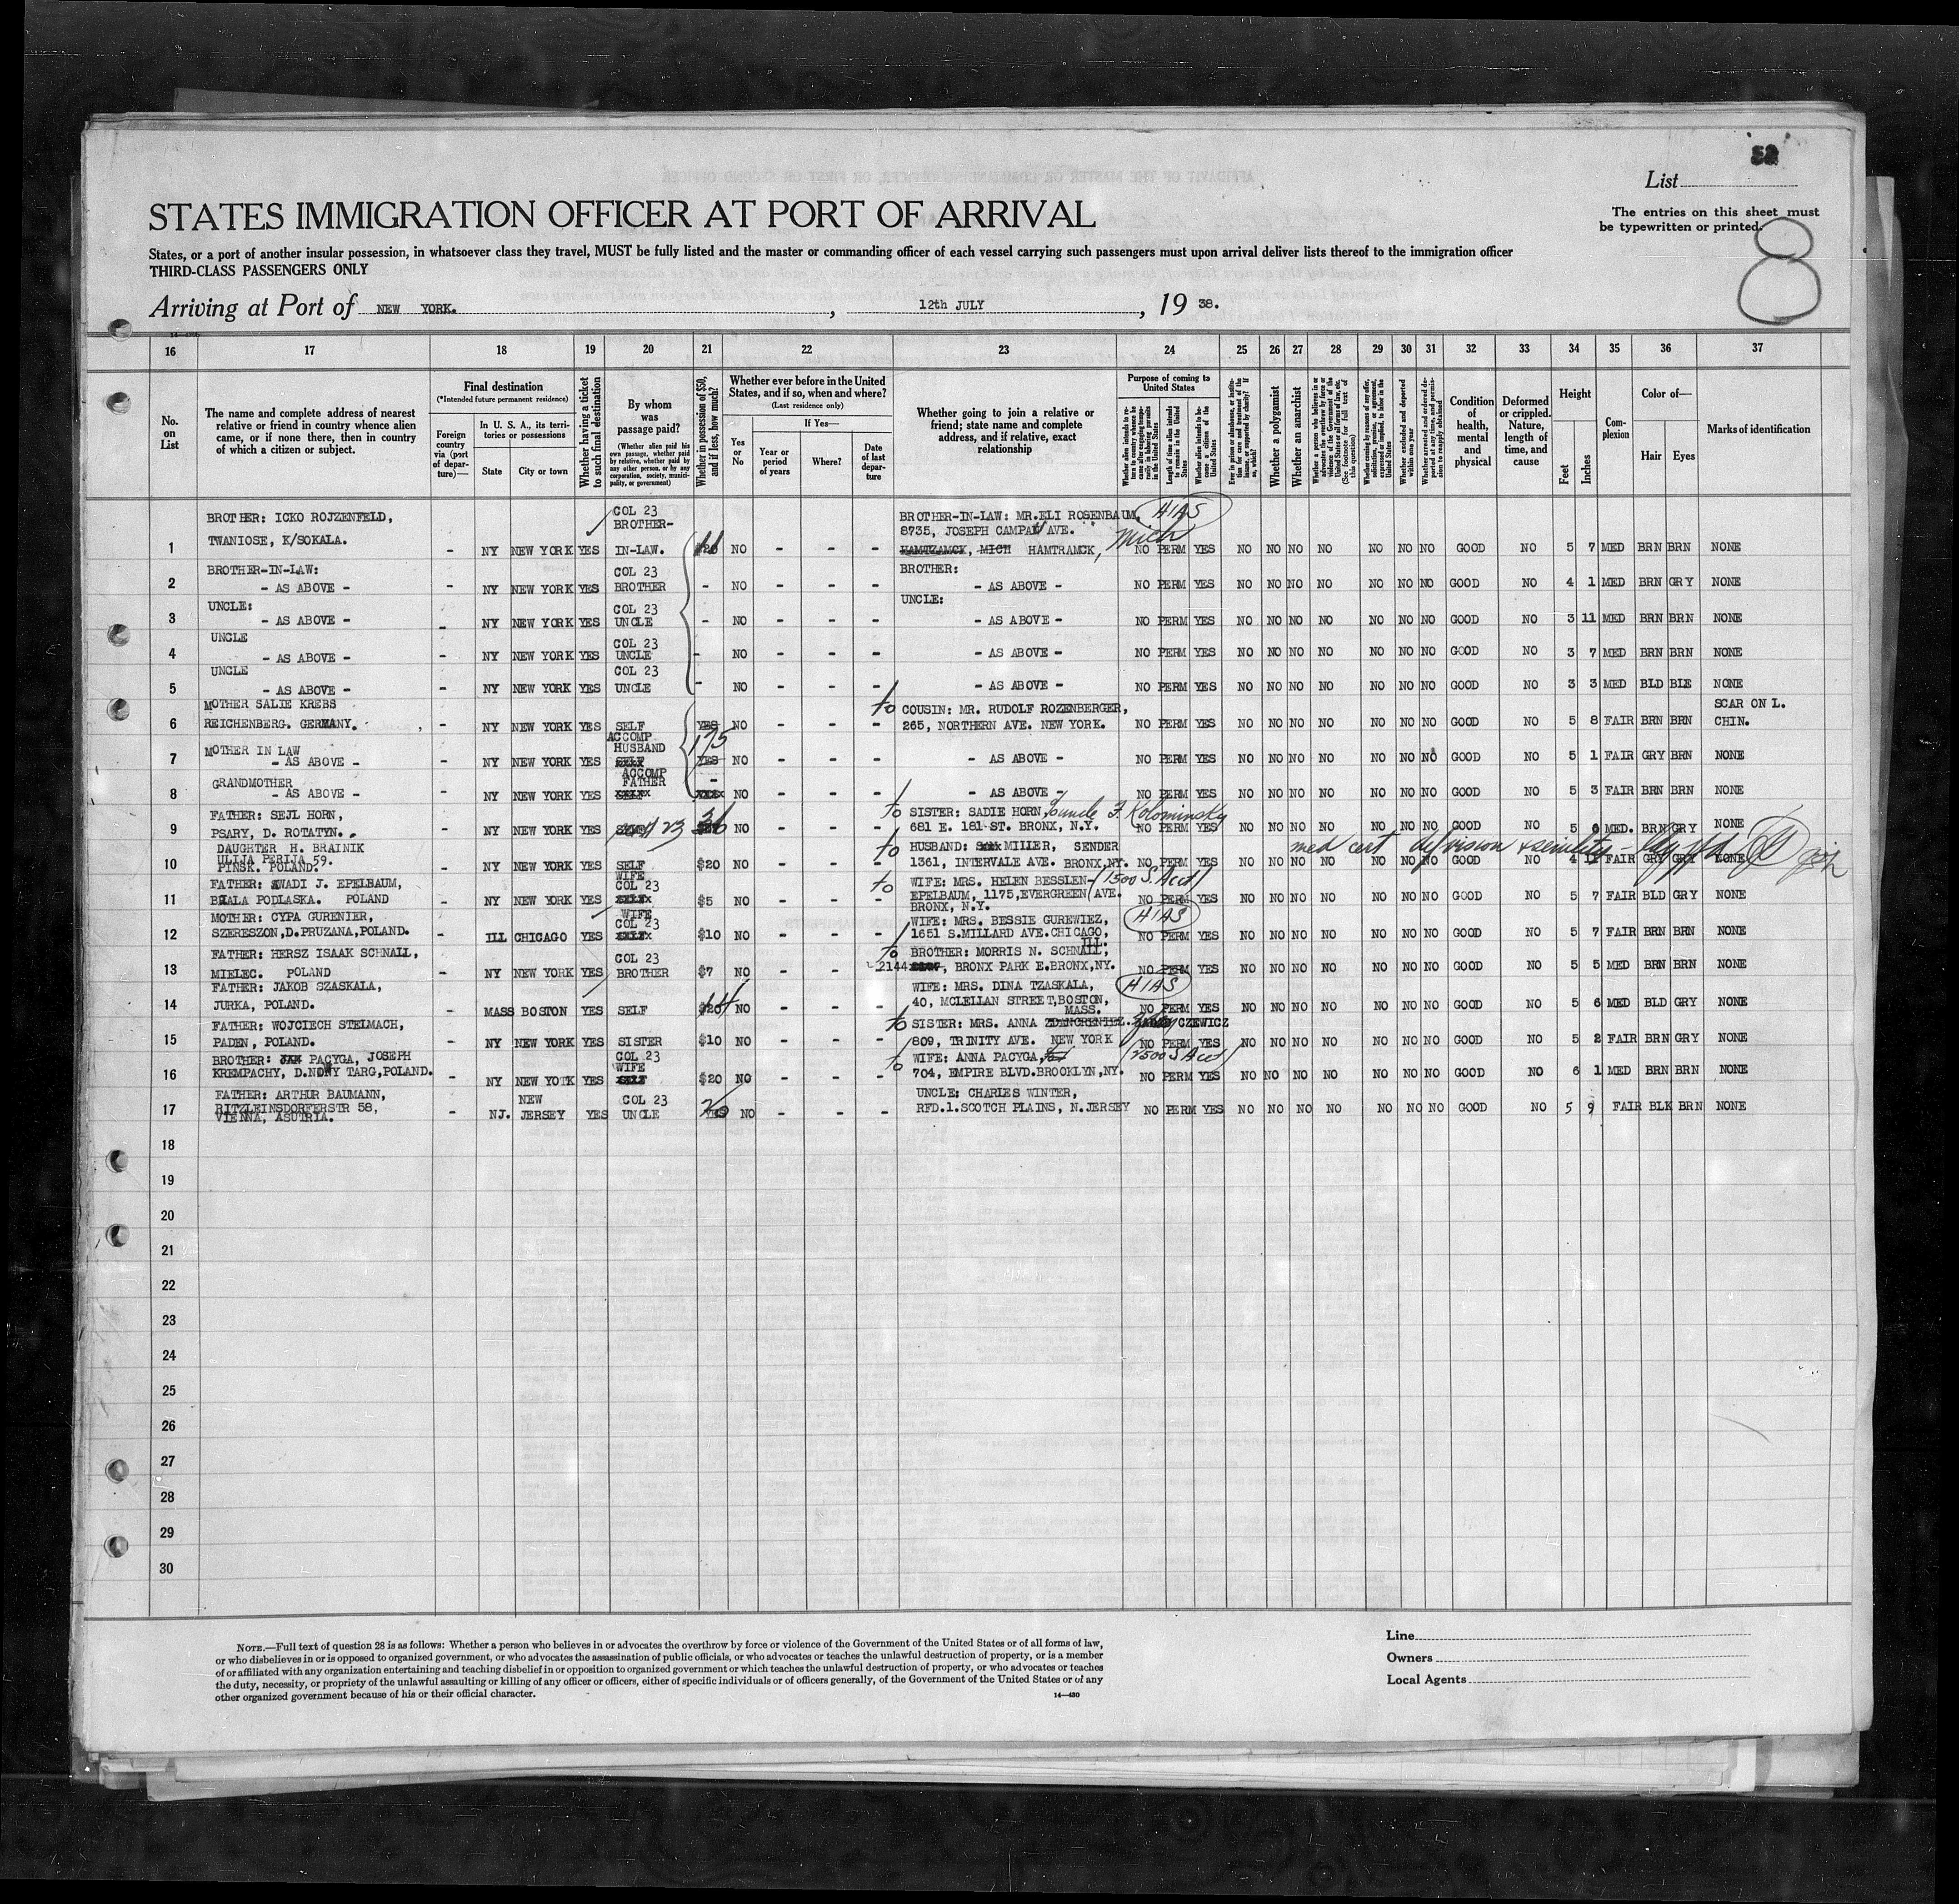 52
List
STATES IMMIGRATION OFFICER AT PORT OF ARRIVAL
The entries on this sheet must
be typewritten or printed.
8
States, or a port of another insular possession, in whatsoever class they travel, MUST be fully listed and the master or commanding officer of each vessel carrying such passengers must upon arrival deliver lists thereof to the immigration officer
THIRD-CLASS PASSENGERS ONLY
Arriving at Port of NEW YORK. , 12th JULY , 19 38.
16 17 18 19 20 21 22 23 24 25 26 27 28 29 30 31 32 33 34 35 36 37
No. on List
The name and complete address of nearest relative or friend in country whence alien came, or if none there, then in country of which a citizen or subject.
Final destination
(*Intended future permanent residence)
Foreign country via (port of departure)—
In U. S. A., its territories or possessions
State
City or town
Whether having a ticket to such final destination
By whom was passage paid?
(Whether alien paid his own passage, whether paid by relative, whether paid by any other person, or by any corporation, society, municipality, or government)
Whether in possession of $50, and if less, how much?
Whether ever before in the United States, and if so, when and where?
(Last residence only)
Yes or No
If Yes—
Year or period of years
Where?
Date of last departure
Whether going to join a relative or friend; state name and complete address, and if relative, exact relationship
Purpose of coming to United States
Length of time alien intends to remain in the United States
Whether alien intends to become a citizen of the United States
Whether a polygamist
Whether an anarchist
Condition of health, mental and physical
Deformed or crippled. Nature, length of time, and cause
Height
Feet
Inches
Complexion
Color of—
Hair
Eyes
Marks of identification
1 BROTHER: ICKO ROJZENFELD, TWANIOSE, K/SOKALA. - NY NEW YORK YES COL 23 BROTHER-IN-LAW. NO - - - BROTHER-IN-LAW: MR.ELI ROSENBAUM, 8735, JOSEPH CAMPAU AVE. HAMTZAMCK, MICH HAMTRAMCK, Mich HIAS NO PERM YES NO NO NO NO NO NO NO GOOD NO 5 7 MED BRN BRN NONE
2 BROTHER-IN-LAW: - AS ABOVE - - NY NEW YORK YES COL 23 BROTHER - NO - - - BROTHER: - AS ABOVE - NO PERM YES NO NO NO NO NO NO NO GOOD NO 4 1 MED BRN GRY NONE
3 UNCLE: - AS ABOVE - - NY NEW YORK YES COL 23 UNCLE - NO - - - UNCLE: - AS ABOVE - NO PERM YES NO NO NO NO NO NO NO GOOD NO 3 11 MED BRN BRN NONE
4 UNCLE - AS ABOVE - - NY NEW YORK YES COL 23 UNCLE - NO - - - - AS ABOVE - NO PERM YES NO NO NO NO NO NO NO GOOD NO 3 7 MED BRN BRN NONE
5 UNCLE - AS ABOVE - - NY NEW YORK YES COL 23 UNCLE - NO - - - - AS ABOVE - NO PERM YES NO NO NO NO NO NO NO GOOD NO 3 3 MED BLD BLE NONE
6 MOTHER SALIE KREBS REICHENBERG. GERMANY. - NY NEW YORK YES SELF YES 175 NO - - - to COUSIN: MR. RUDOLF ROZENBERGER, 265, NORTHERN AVE. NEW YORK. NO PERM YES NO NO NO NO NO NO NO GOOD NO 5 8 FAIR BRN BRN SCAR ON L. CHIN.
7 MOTHER IN LAW - AS ABOVE - - NY NEW YORK YES ACCOMP HUSBAND SELF YES NO - - - - AS ABOVE - NO PERM YES NO NO NO NO NO NO NO GOOD NO 5 1 FAIR GRY BRN NONE
8 GRANDMOTHER - AS ABOVE - - NY NEW YORK YES ACCOMP FATHER - NO - - - - AS ABOVE - NO PERM YES NO NO NO NO NO NO NO GOOD NO 5 3 FAIR BRN BRN NONE
9 FATHER: SEJL HORN, PSARY, D. ROTATYN. - NY NEW YORK YES 23 NO - - - to SISTER: SADIE HORN, uncle F. Kolominsky 681 E. 181 ST. BRONX, N.Y. NO PERM YES NO NO NO NO NO NO NO GOOD NO 5 6 MED. BRN GRY NONE
10 DAUGHTER H. BRAINIK ULIJA PERIJA 59. PINSK. POLAND. - NY NEW YORK YES SELF $20 NO - - - to HUSBAND: MILLER, SENDER 1361, INTERVALE AVE. BRONX,NY. NO PERM YES NO NO NO NO NO NO NO GOOD NO 4 11 FAIR GRY GRY NONE
med cert def vision & senility
11 FATHER: WADI J. EPELBAUM, BIALA PODLASKA. POLAND - NY NEW YORK YES WIFE COL 23 $5 NO - - - to WIFE: MRS. HELEN BESSLEN-EPELBAUM, 1175,EVERGREEN AVE. BRONX, N.Y. (1500 S. Acct) NO PERM YES NO NO NO NO NO NO NO GOOD NO 5 7 FAIR BLD GRY NONE
12 MOTHER: CYPA GURENIER, SZERESZON,D.PRUZANA,POLAND. - ILL CHICAGO YES WIFE COL 23 $10 NO - - - WIFE: MRS. BESSIE GUREWIEZ, 1651 S.MILLARD AVE.CHICAGO, ILL. HIAS NO PERM YES NO NO NO NO NO NO NO GOOD NO 5 7 FAIR BRN BRN NONE
13 FATHER: HERSZ ISAAK SCHNALL, MIELEC. POLAND - NY NEW YORK YES COL 23 BROTHER $7 NO - - to BROTHER: MORRIS N. SCHNALL, 2144 , BRONX PARK E.BRONX,NY. NO PERM YES NO NO NO NO NO NO NO GOOD NO 5 5 MED BRN BRN NONE
14 FATHER: JAKOB SZASKALA, JURKA, POLAND. MASS BOSTON YES SELF $20 NO - - - WIFE: MRS. DINA TZASKALA, 40, MCLELLAN STREET,BOSTON, MASS. HIAS NO PERM YES NO NO NO NO NO NO NO GOOD NO 5 6 MED BLD GRY NONE
15 FATHER: WOJCIECH STELMACH, PADEN, POLAND. - NY NEW YORK YES SISTER $10 NO - - - to SISTER: MRS. ANNA CZEWICZ 809, TRINITY AVE. NEW YORK NO PERM YES NO NO NO NO NO NO NO GOOD NO 5 2 FAIR BRN GRY NONE
16 BROTHER: JAN PACYGA, JOSEPH KREMPACHY, D.NOWY TARG,POLAND. - NY NEW YOTK YES COL 23 WIFE SELF $20 NO - - - to WIFE: ANNA PACYGA, 704, EMPIRE BLVD.BROOKLYN,NY. (2500 S Acct) NO PERM YES NO NO NO NO NO NO NO GOOD NO 6 1 MED BRN BRN NONE
17 FATHER: ARTHIR BAUMANN, RITZLEINSDORFERSTR 58, VIENNA, ASUTRIA. - NJ. NEW JERSEY YES COL 23 UNCLE YES 20 NO - - - UNCLE: CHARLES WINTER, RFD.1.SCOTCH PLAINS, N.JERSEY NO PERM YES NO NO NO NO NO NO NO GOOD NO 5 9 FAIR BLK BRN NONE
18
19
20
21
22
23
24
25
26
27
28
29
30
NOTE.—Full text of question 28 is as follows: Whether a person who believes in or advocates the overthrow by force or violence of the Government of the United States or of all forms of law,
or who disbelieves in or is opposed to organized government, or who advocates the assassination of public officials, or who advocates or teaches the unlawful destruction of property, or is a member
of or affiliated with any organization entertaining and teaching disbelief in or opposition to organized government or which teaches the unlawful destruction of property, or who advocates or teaches
the duty, necessity, or propriety of the unlawful assaulting or killing of any officer or officers, either of specific individuals or of officers generally, of the Government of the United States or of any
other organized government because of his or their official character.
14—430
Line
Owners
Local Agents